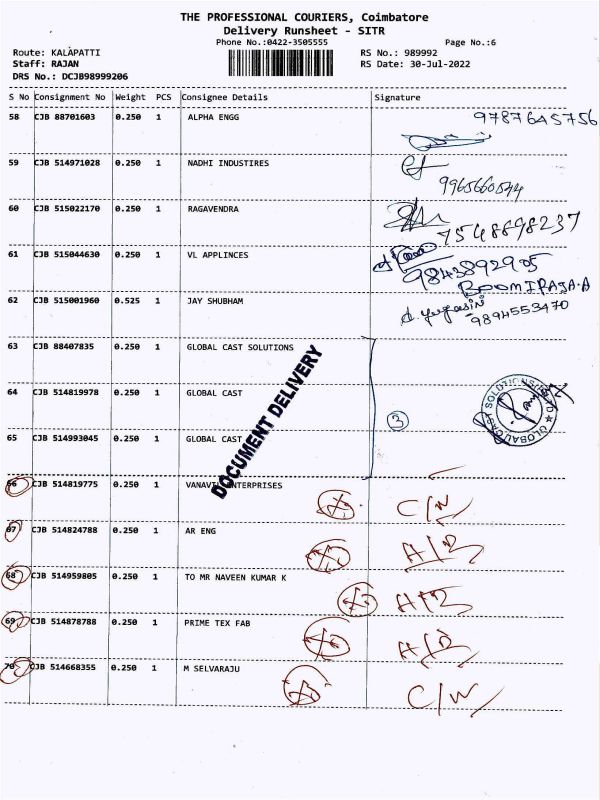 THE PROFESSIONAL COURIERS, Coimbatore
Delivery Runsheet - SITR
Phone No.:0422-3505555 Page No.:6
Route: KALAPATTI RS No.: 989992
Staff: RAJAN RS Date: 30-Jul-2022
DRS No.: DCJB98999206
S No Consignment No Weight PCS Consignee Details Signature
58 CJB 88701603 0.250 1 ALPHA ENGG 9787645756
59 CJB 514971028 0.250 1 NADHI INDUSTIRES
60 CJB 515022170 0.250 1 RAGAVENDRA 7548898237
61 CJB 515044630 0.250 1 VL APPLINCES 9843892905
BOOMIRAJA.A
62 CJB 515001960 0.525 1 JAY SHUBHAM 9894553470
63 CJB 88407835 0.250 1 GLOBAL CAST SOLUTIONS
64 CJB 514819978 0.250 1 GLOBAL CAST
65 CJB 514993045 0.250 1 GLOBAL CAST 3
DOCUMENT DELIVERY
66 CJB 514819775 0.250 1 VANAVIL ENTERPRISES C/W
67 CJB 514824788 0.250 1 AR ENG
68 CJB 514959805 0.250 1 TO MR NAVEEN KUMAR K
69 CJB 514878788 0.250 1 PRIME TEX FAB
70 CJB 514668355 0.250 1 M SELVARAJU C/W